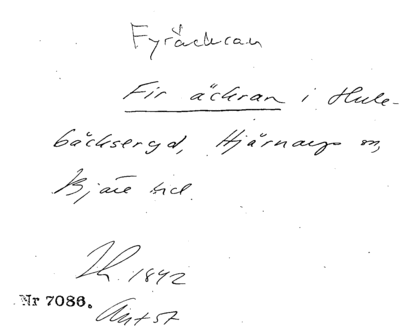 Fyräckran
Fir äckran i Hule-
bäckseryd, Hjärnarps sn,
Bjäre hd.
Th. 1842
Nr 7086.
Antst